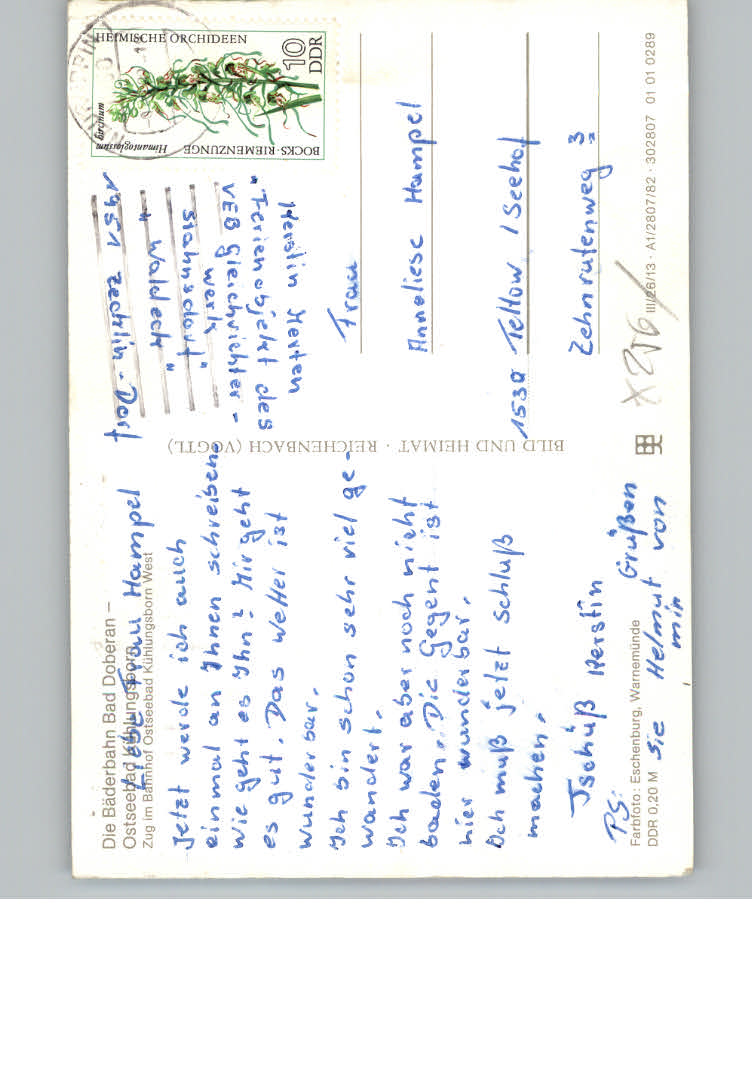 Die Bäderbahn Bad Doberan –
Ostseebad Kühlungsborn
Zug im Bahnhof Ostseebad Kühlungsborn West
Liebe Frau Hampel
Jetzt werde ich auch
einmal an Ihnen schreiben
Wie geht es Ihn? Mir geht
es gut. Das Wetter ist
wunderbar.
Ich bin schon sehr viel ge-
wandert.
Ich war aber noch nicht
baden. Die Gegent ist
hier wunderbar.
Ich muß jetzt schluß
machen.
Tschüß Kerstin
PS: Grüßen
Sie Helmut von
mir
Farbfoto: Eschenburg, Warnemünde
DDR 0,20 M
BILD UND HEIMAT · REICHENBACH (VOGTL)
HEIMISCHE ORCHIDEEN
10
DDR
BOCKS-RIEMENZUNGE
Himantoglossum
hircinum
Kerstin Merten
"Ferienobjekt des
VEB Gleichrichter-
werk
Stahnsdorf"
"Waldeck"
1951 Zechlin-Dorf
Frau
Anneliese Hampel
1530 Teltow / Seehof
Zehnrutenweg 3
III/26/13 · A1/2807/82 · 302807 01 01 0289